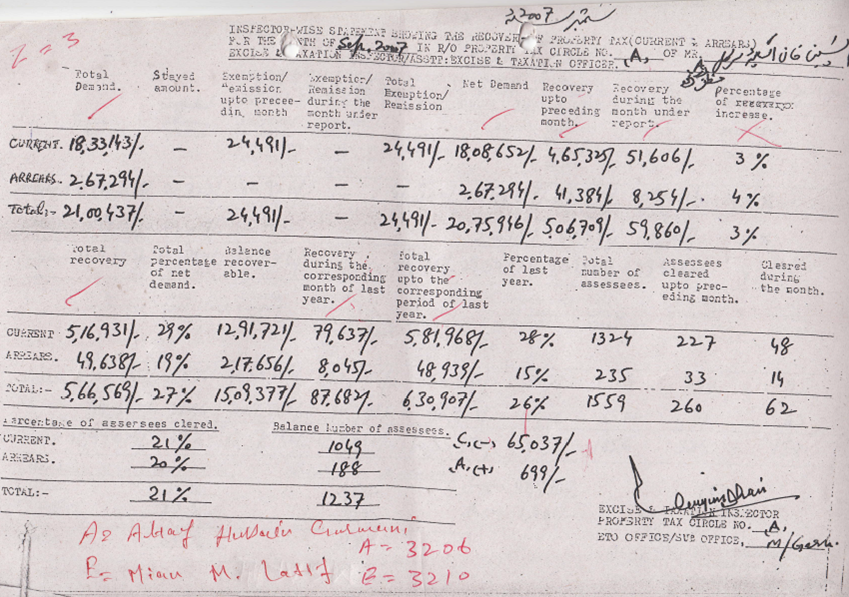 ستمبر 2007ء
Z = 3
INSPECTOR-WISE STATEMENT SHOWING THE RECOVERY OF PROPERTY TAX(CURRENT & ARREARS)
FOR THE MONTH OF Sep, 2007 IN R/O PROPERTY TAX CIRCLE NO. "A" OF MR.
EXCISE & TAXATION INSPECTOR/ASSTT:EXCISE & TAXATION OFFICER.
Total Demand. Stayed amount. Exemption/Remission upto preceeding month Exemption/Remission during the month under report. Total Exemption/Remission Net Demand Recovery upto preceding month. Recovery during the month under report. Percentage of increase.
CURRENT. 18,33,143/- - 24,491/- - 24,491/- 18,08,652/- 4,65,325/- 51,606/- 3%
ARREARS. 2,67,294/- - - - - 2,67,294/- 41,384/- 8,254/- 4%
Total:- 21,00,437/- - 24,491/- - 24,491/- 20,75,946/- 5,06,709/- 59,860/- 3%
Total recovery Total percentage of net demand. Balance recoverable. Recovery during the corresponding month of last year. Total recovery upto the corresponding period of last year. Percentage of last year. Total number of assessees. Assessees cleared upto preceding month. Cleared during the month.
CURRENT 5,16,931/- 29% 12,91,721/- 79,637/- 5,81,968/- 28% 1324 227 48
ARREARS. 49,638/- 19% 2,17,656/- 8,045/- 48,939/- 15% 235 33 14
TOTAL:- 5,66,569/- 27% 15,09,377/- 87,682/- 6,30,907/- 26% 1559 260 62
Percentage of assersees clered. Balance Number of assessees.
CURRENT. 21% 1049 C,(-) 65,037/-
ARREARS. 20% 188 A,(+) 699/-
TOTAL:- 21% 1237
EXCISE & TAXATION INSPECTOR
PROPERTY TAX CIRCLE NO. "A"
ETO OFFICE/SUB OFFICE, M/Garh.
A = Hussain
A = 3206
E = Mian M. Latif E = 3210